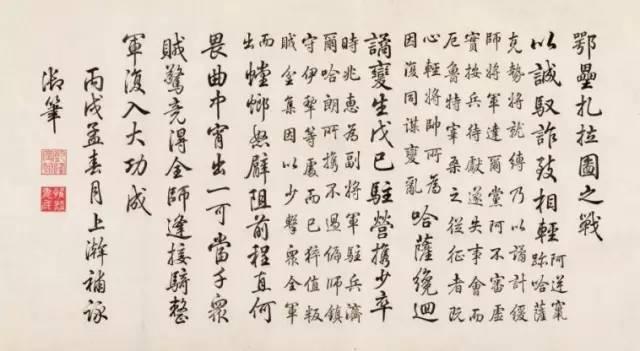 鄂壘扎拉圖之戰
以誠馭詐致相輕
阿逆竄
跡哈薩
克勢將就縛乃以譎計緩
師將軍達爾黨阿不審虛
實按兵待獻遂失事會而
厄魯特宰桑之從征者既
心輕將帥所為
因復同謀變亂
哈薩纔迴
譎變生戊已駐營攜少卒
時兆惠為副將軍駐兵濟
爾哈朗所攜不過偏師鎮
守伊犂等處而已猝值叛
賊坌集因以少擊眾全軍
而
出
螳螂怒臂阻前程直何
畏曲中宵出一可當千眾
賊驚竟得全師逢接騎整
軍復入大功成
丙戌孟春月上澣補詠
御筆